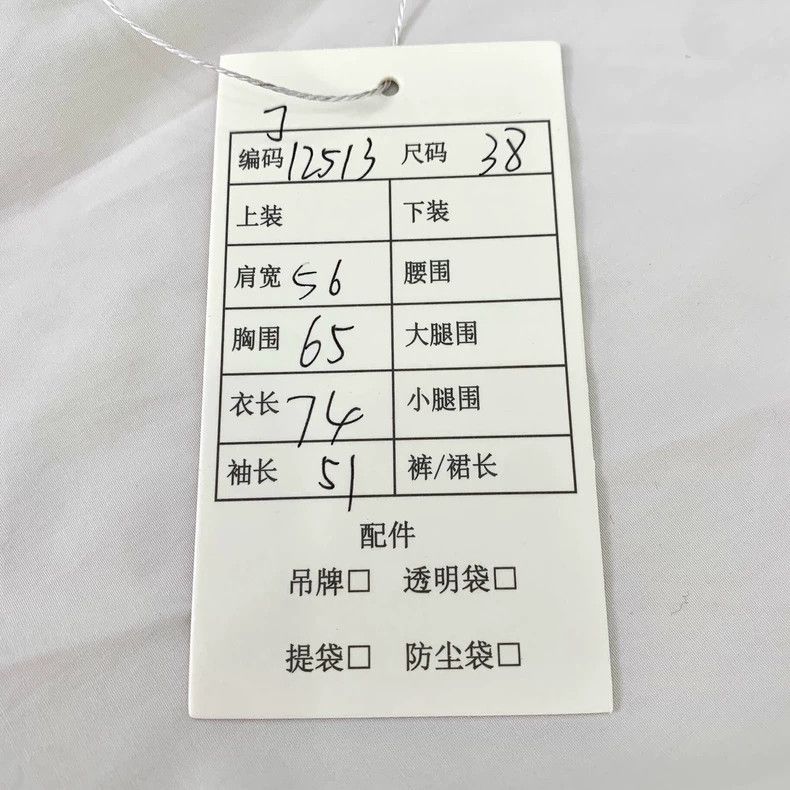 J
编码 12513 尺码 38
上装 下装
肩宽 56 腰围
胸围 65 大腿围
衣长 74 小腿围
袖长 51 裤/裙长
配件
吊牌□ 透明袋□
提袋□ 防尘袋□